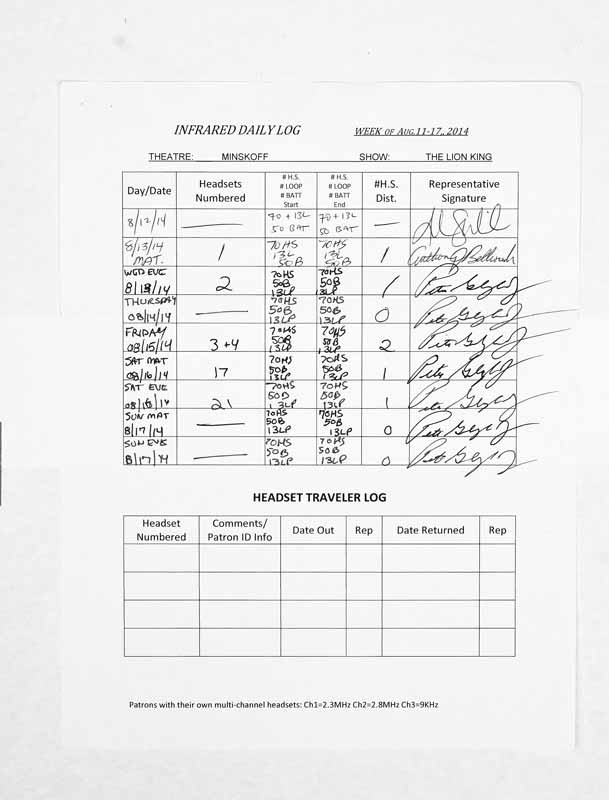 INFRARED DAILY LOG WEEK OF AUG.11-17., 2014
THEATRE: MINSKOFF SHOW: THE LION KING
Day/Date Headsets Numbered # H.S. # LOOP # BATT Start # H.S. # LOOP # BATT End #H.S. Dist. Representative Signature
8/12/14 — 70 + 13L 50 BAT 70 + 13L 50 BAT —
8/13/14 MAT. 1 70HS 13L 50B 70HS 13L 50B 1 Anthony
WED EVE 8/13/14 2 70HS 50B 13LP 70HS 50B 13LP 1
THURSDAY 08/14/14 — 70HS 50B 13LP 70HS 50B 13LP 0
FRIDAY 08/15/14 3+4 70HS 50B 13LP 70HS 50B 13LP 2
SAT MAT 08/16/14 17 70HS 50B 13LP 70HS 50B 13LP 1
SAT EVE 08/16/14 21 70HS 50B 13LP 70HS 50B 13LP 1
SUN MAT 8/17/14 — 70HS 50B 13LP 70HS 50B 13LP 0
SUN EVE 8/17/14 — 70HS 50B 13LP 70HS 50B 13LP 0
HEADSET TRAVELER LOG
Headset Numbered Comments/ Patron ID Info Date Out Rep Date Returned Rep
Patrons with their own multi-channel headsets: Ch1=2.3MHz Ch2=2.8MHz Ch3=9KHz